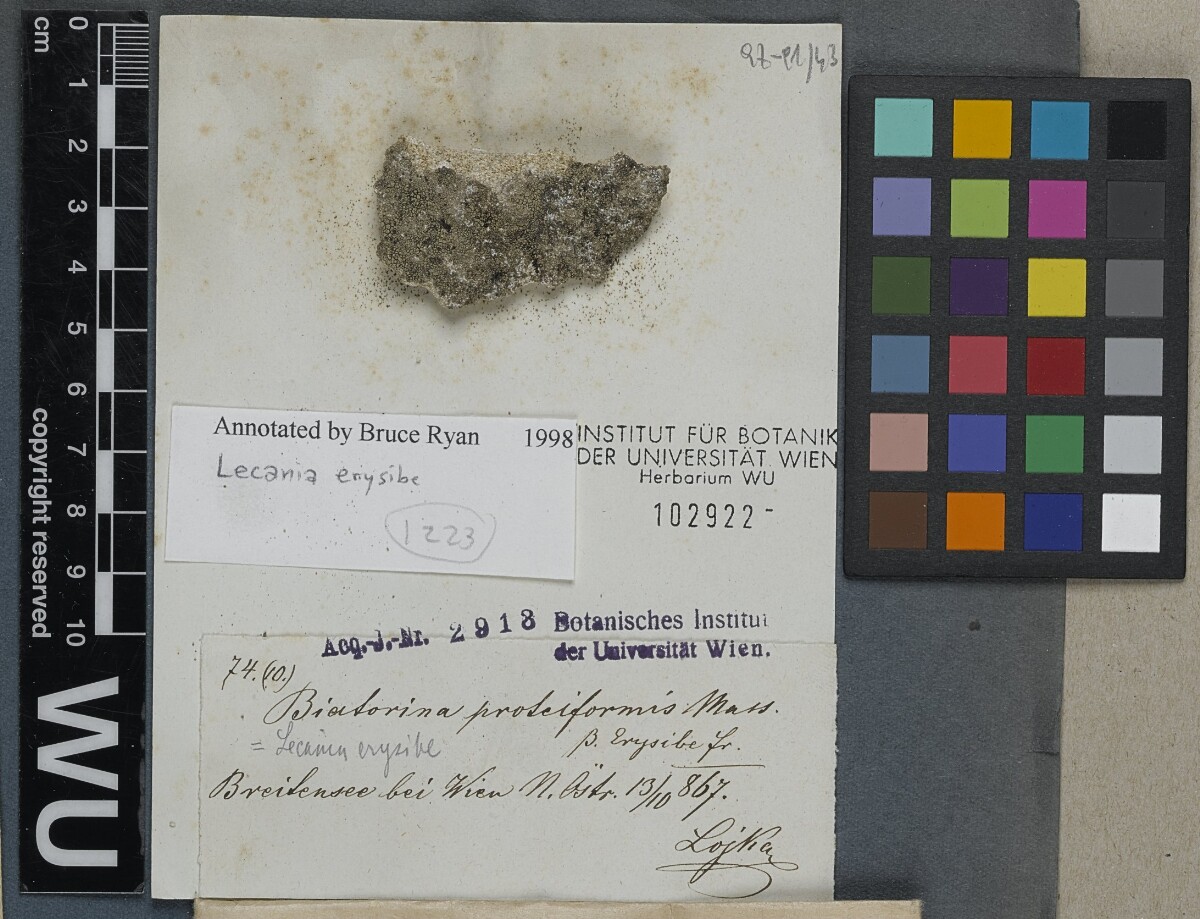 cm
0
1
2
3
4
5
6
7
8
9
10
copyright reserved
WU
Annotated by Bruce Ryan 1998
Lecania erysibe
1223
INSTITUT FÜR BOTANIK
DER UNIVERSITÄT WIEN
Herbarium WU
102922-
Acq.-J.-Nr. 2913 Botanisches Institut
der Universität Wien.
74.(10.)
Biatorina proteiformis Mass.
= Lecania erysibe β. Erysibe fr.
Breitensee bei Wien N. Östr. 13/10 867.
Lojka